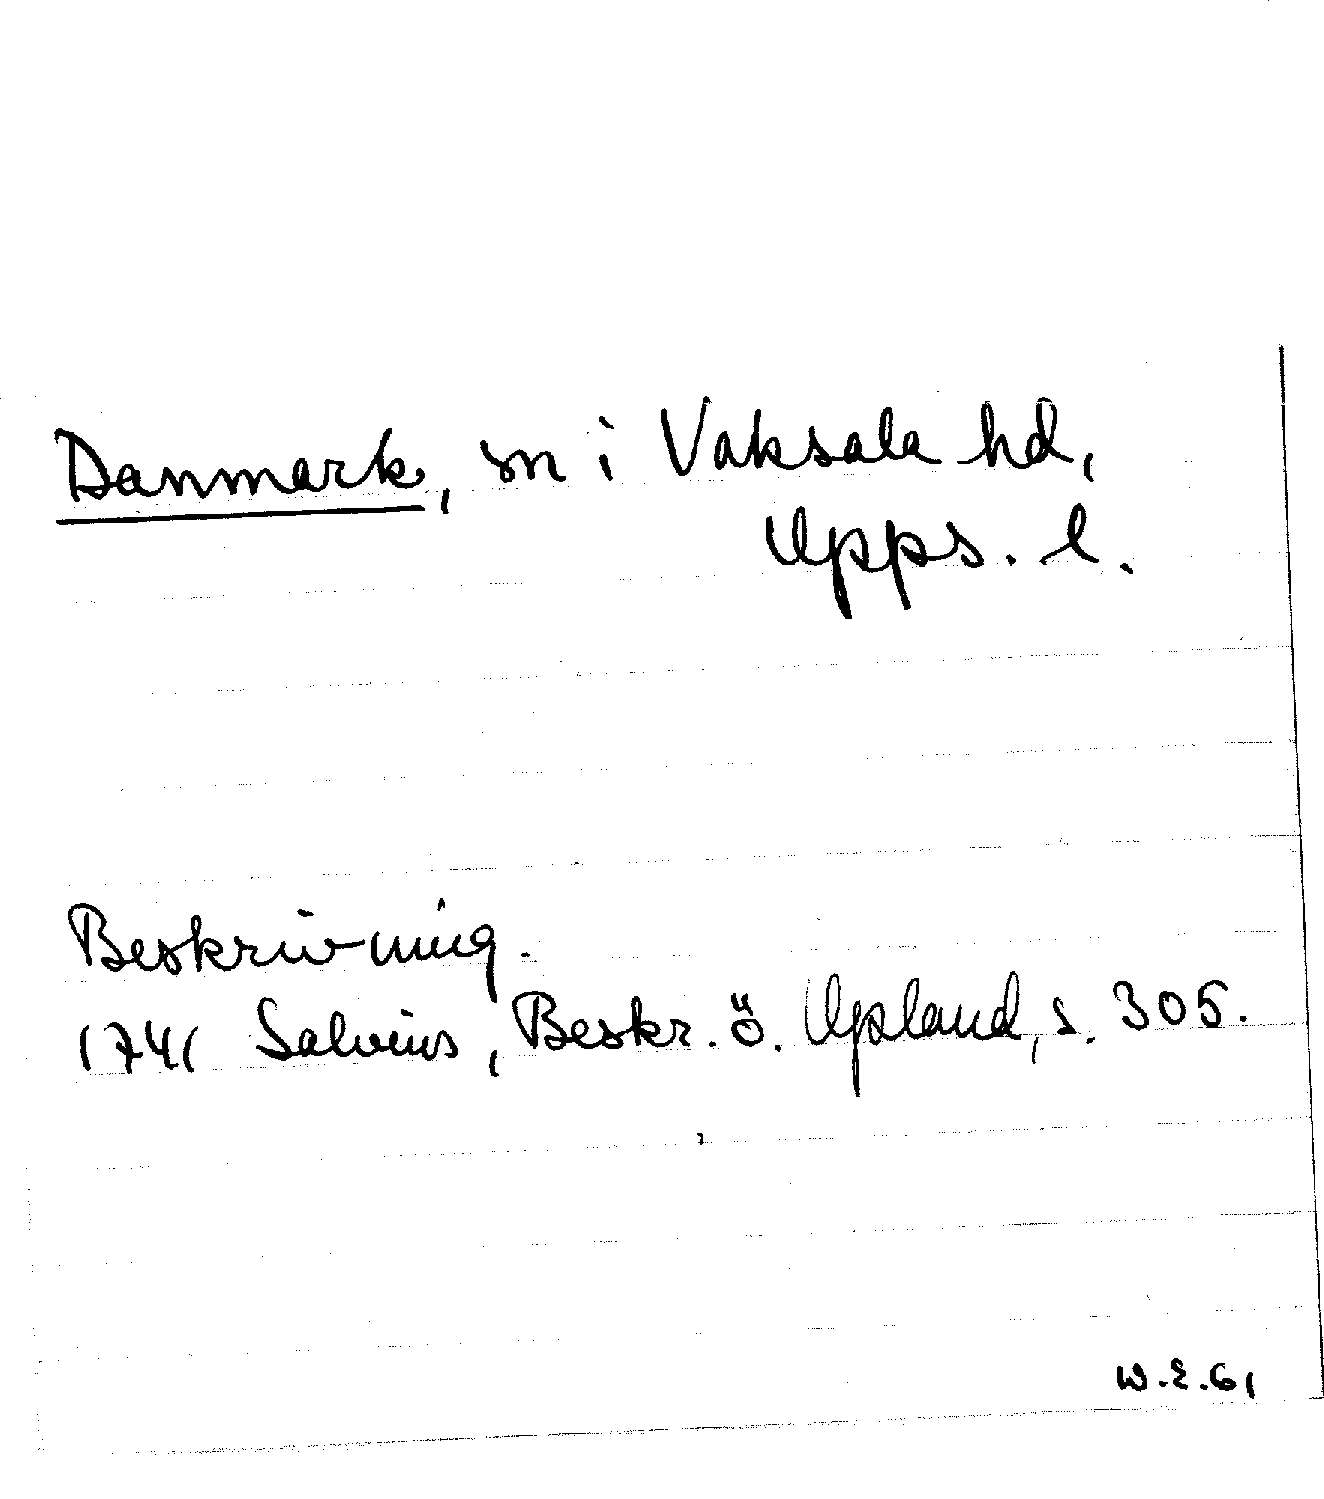 Danmark, sn i Vaksala hd,
Upps. l.
Beskrivning.
1741 Salvius, Beskr. ö. Upland, s. 305.
W.E.61